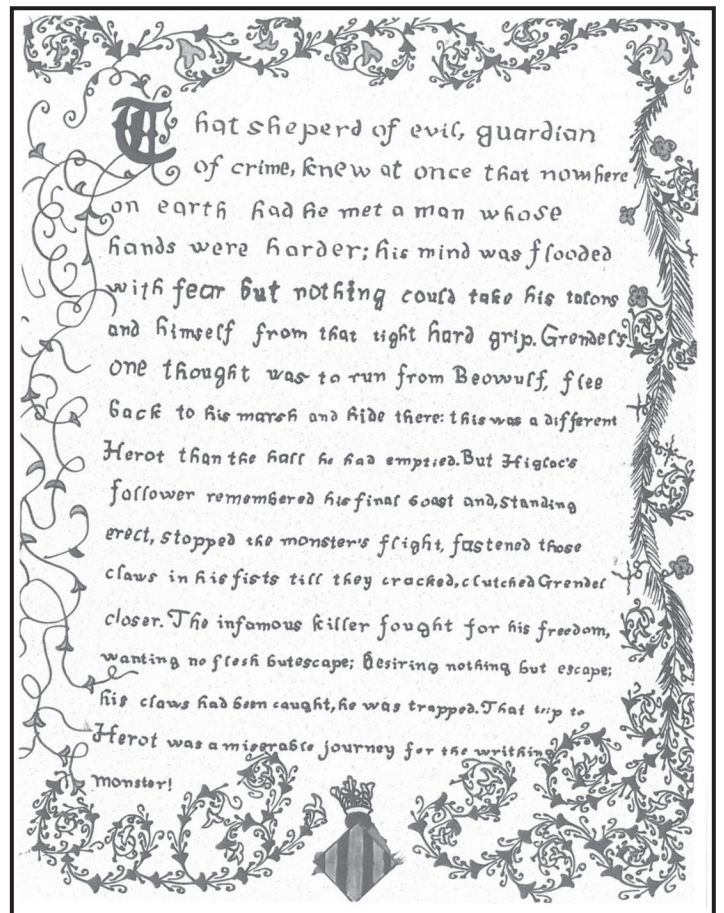 That sheperd of evil, guardian
of crime, knew at once that nowhere
on earth had he met a man whose
hands were harder; his mind was flooded
with fear but nothing could take his talons
and himself from that tight hard grip. Grendel's
one thought was to run from Beowulf, flee
back to his marsh and hide there: this was a different
Herot than the hall he had emptied. But Higlac's
follower remembered his final boast and, standing
erect, stopped the monster's flight, fastened those
claws in his fists till they cracked, clutched Grendel
closer. The infamous killer fought for his freedom,
wanting no flesh but escape; desiring nothing but escape;
his claws had been caught, he was trapped. That trip to
Herot was a miserable journey for the writhing
monster!